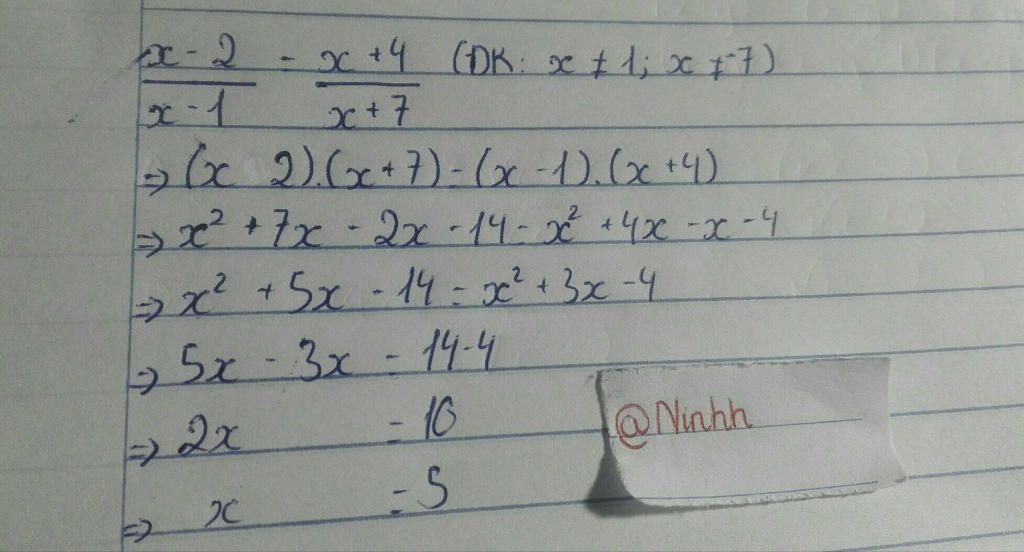 x - 2 / x - 1 = x + 4 / x + 7 (ĐK: x ≠ 1; x ≠ -7)
=> (x 2).(x + 7) = (x - 1).(x + 4)
=> x² + 7x - 2x - 14 = x² + 4x - x - 4
=> x² + 5x - 14 = x² + 3x - 4
=> 5x - 3x = 14 - 4
=> 2x = 10
=> x = 5
@Ninhh